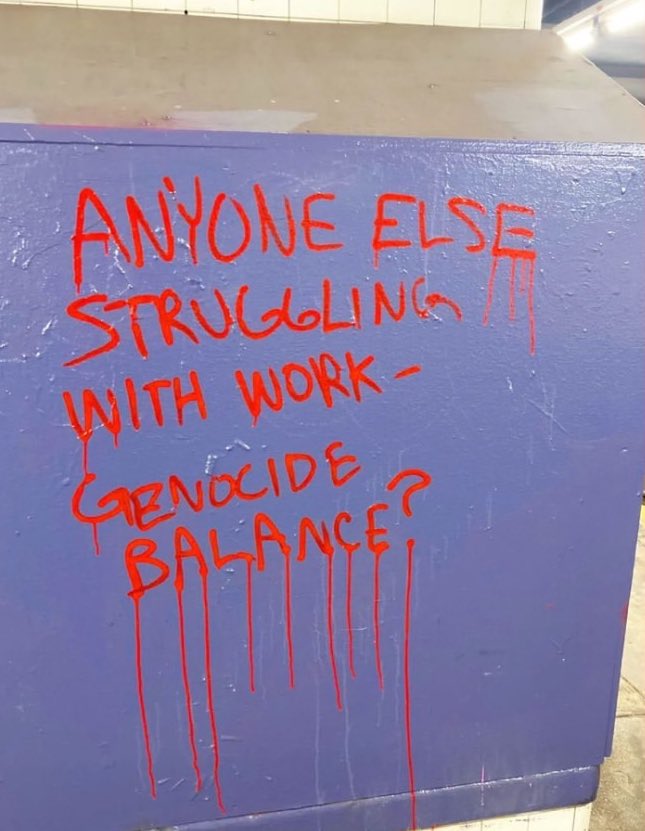 ANYONE ELSE
STRUGGLING
WITH WORK-
GENOCIDE
BALANCE?